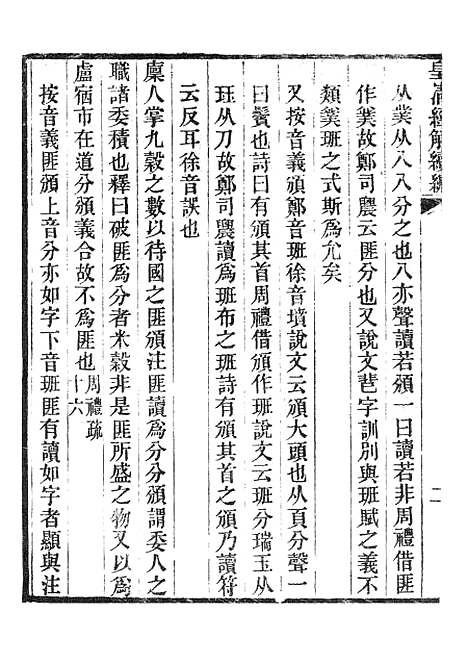 皇清經解續編
从菐从八八分之也八亦聲讀若頒一曰讀若非周禮借匪
作菐故鄭司農云匪分也又說文琶字訓別與班賦之義不
類菐班之式斯爲允矣
又按音義頒鄭音班徐音墳說文云頒大頭也从頁分聲一
曰鬢也詩曰有頒其首周禮借頒作班說文云班分瑞玉从
珏从刀故鄭司農讀爲班布之班詩有頒其首之頒乃讀符
云反耳徐音誤也
廩人掌九穀之數以待國之匪頒注匪讀爲分分頒謂委人之
職諸委積也釋曰破匪爲分者米穀非是匪所盛之物又以爲
盧宿市在道分頒義合故不爲匪也周禮疏十六
按音義匪頒上音分亦如字下音班匪有讀如字者顯與注
二